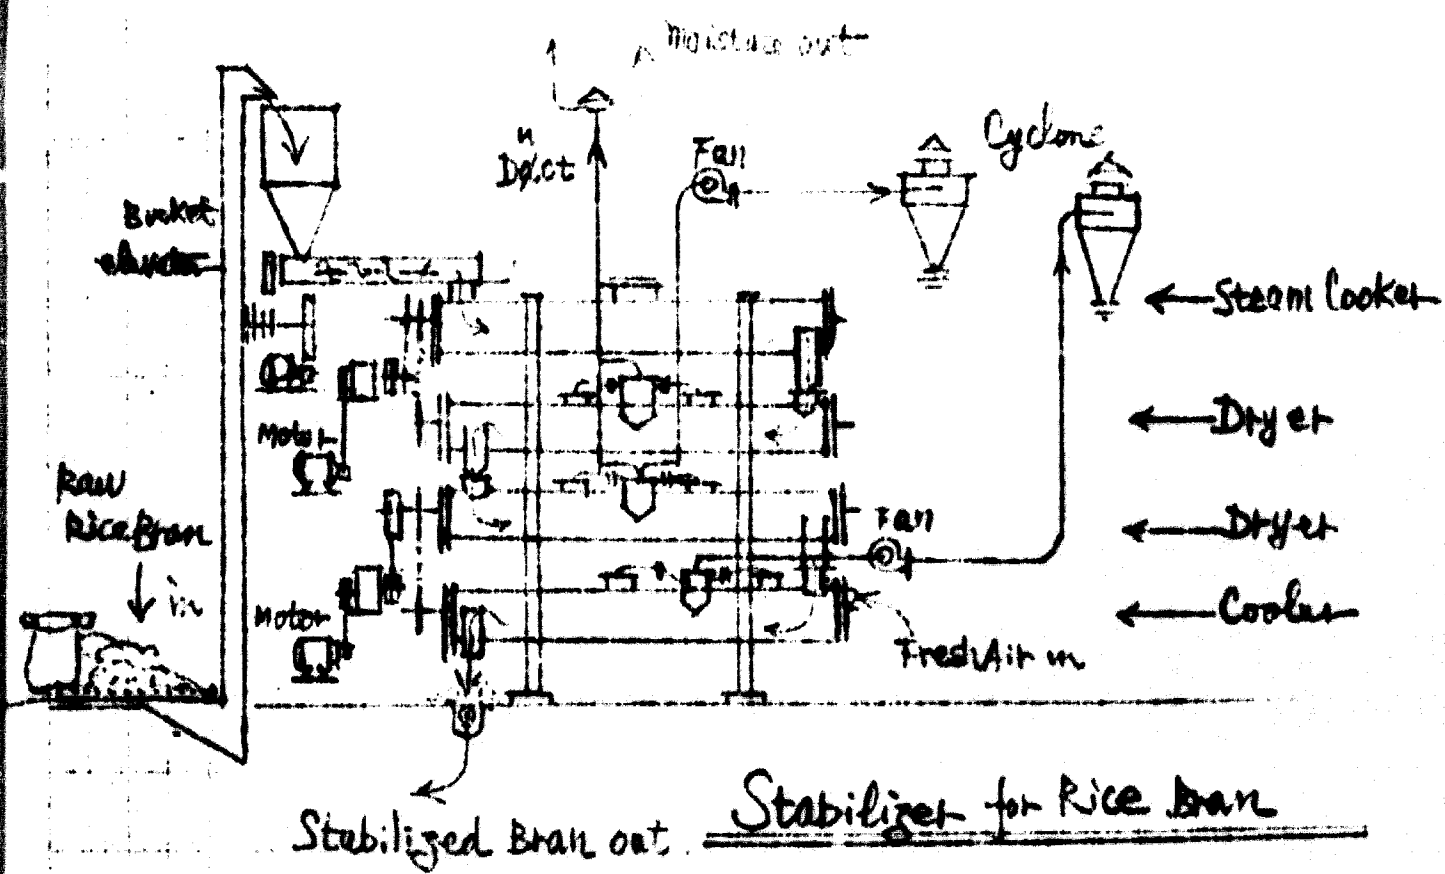 Moisture out
Duct
Fan
Cyclone
Bucket
elevator
Steam Cooker
Motor
Dryer
Raw
Rice Bran
in
Fan
Dryer
Motor
Cooler
Fresh Air in
Stabilized Bran out
Stabilizer for Rice Bran